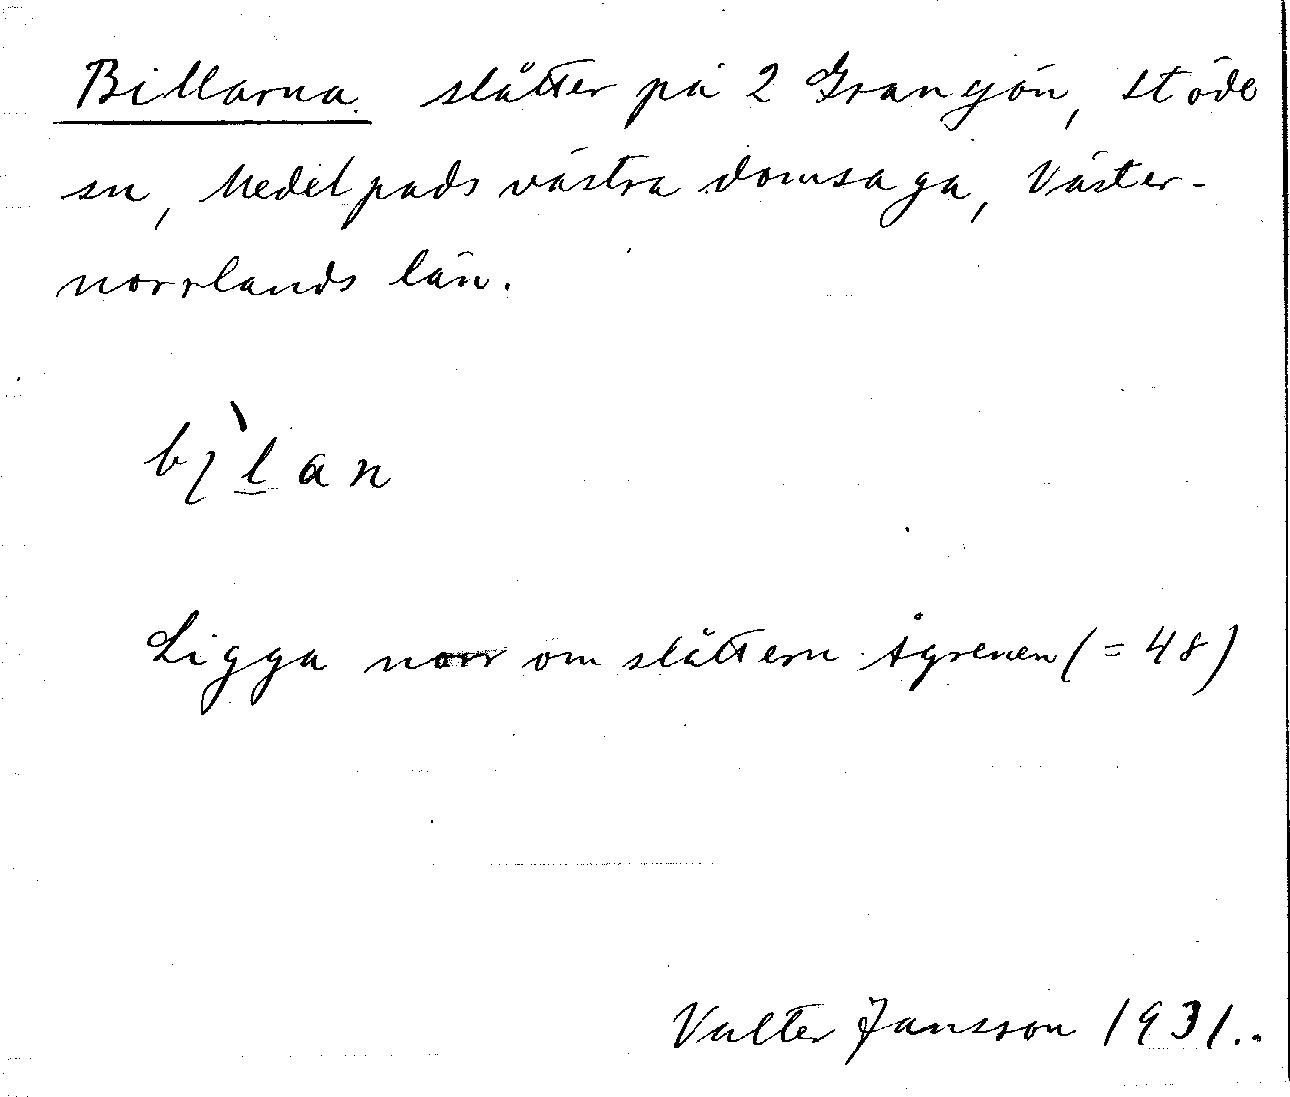 Billarna slåtter på 2 Gransjön, Stöde
sn, Medelpads västra domsaga, Väster-
norrlands län.
bɿ̀lan
Ligga norr om slåttern Ågrenen (=48)
Valter Jansson 1931.